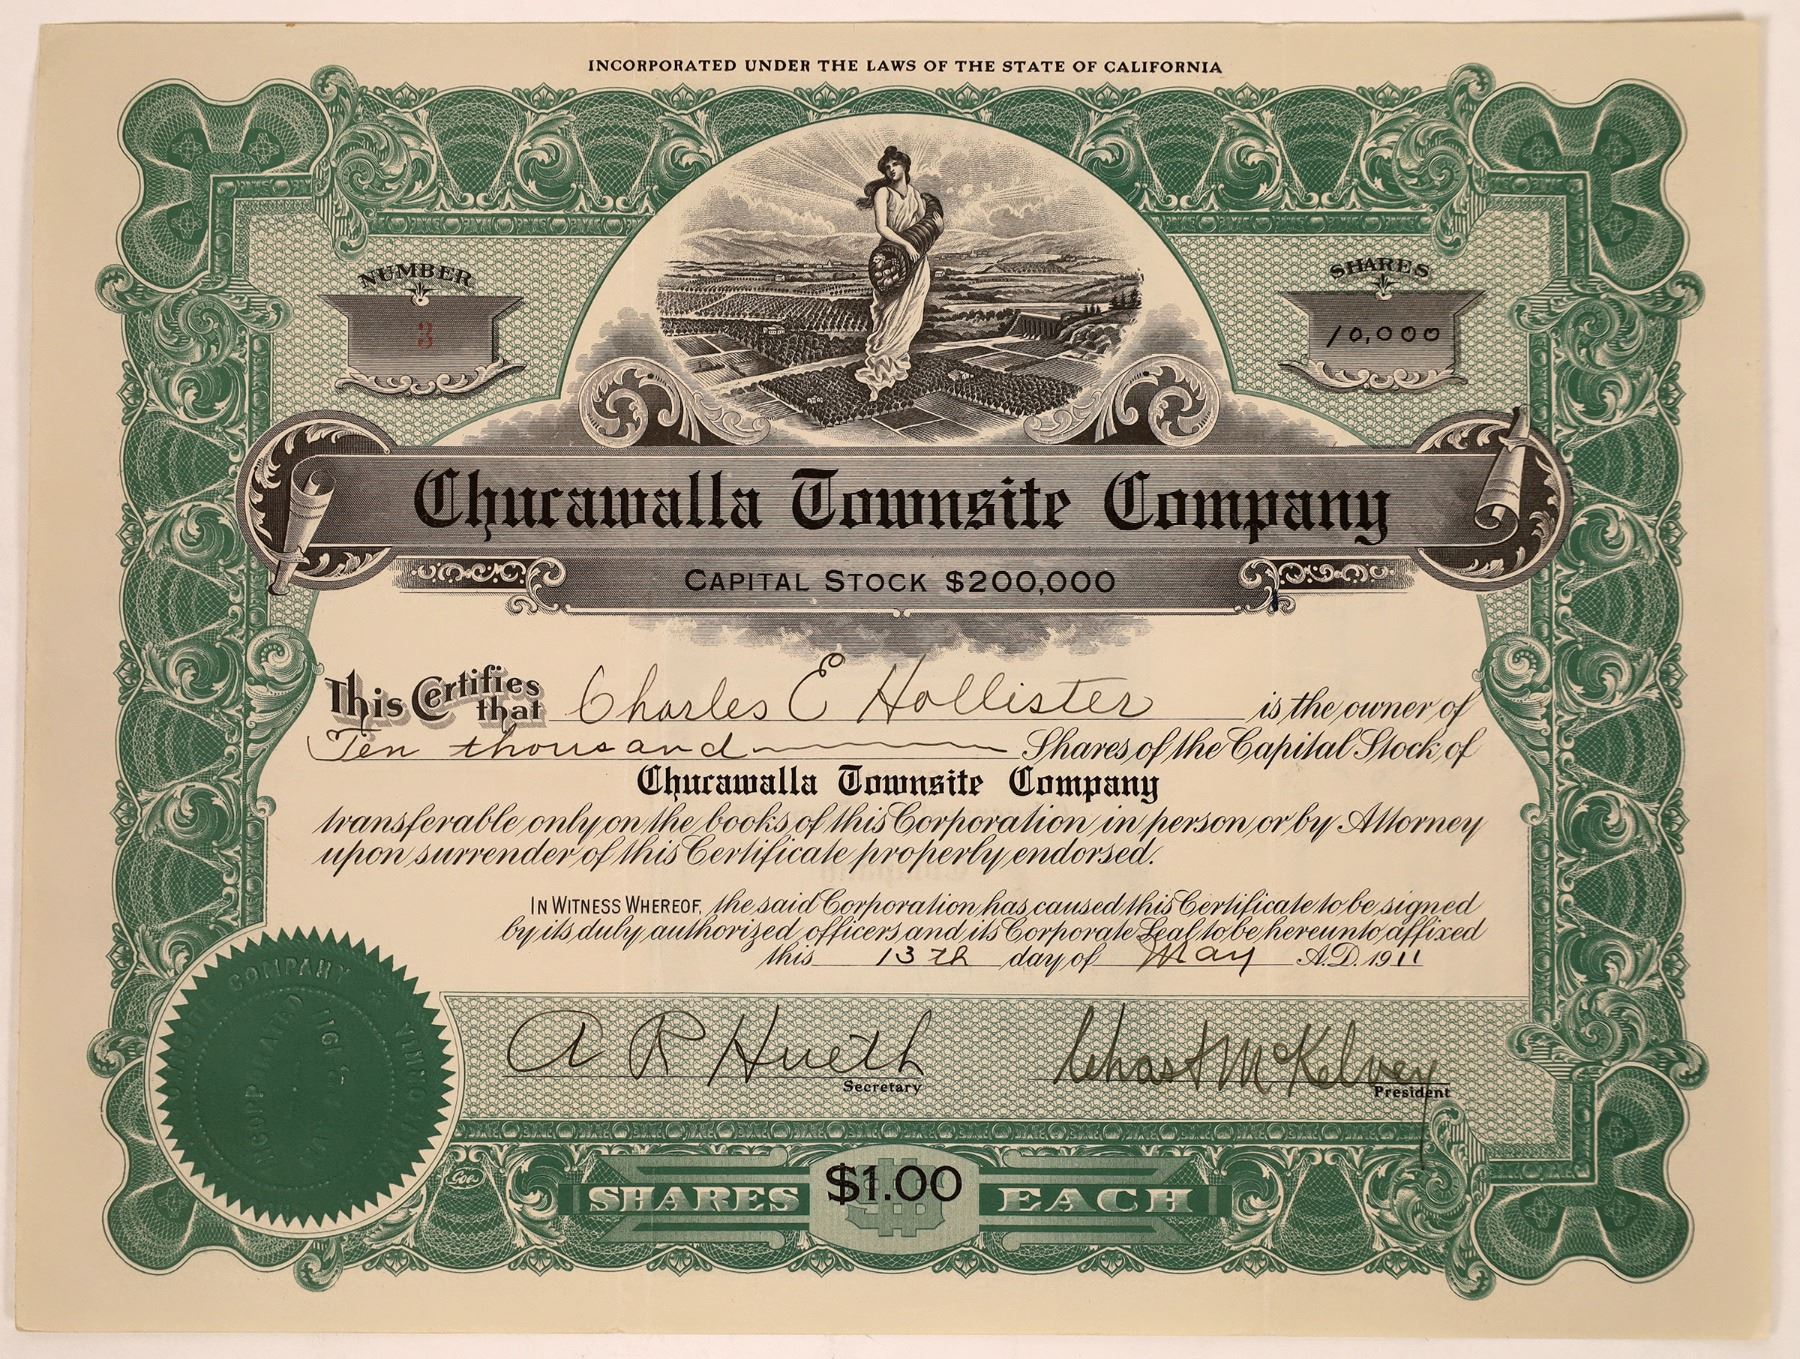 INCORPORATED UNDER THE LAWS OF THE STATE OF CALIFORNIA
NUMBER
3
SHARES
10,000
Chucawalla Townsite Company
CAPITAL STOCK $200,000
This Certifies that Charles E Hollister is the owner of
Ten thousand Shares of the Capital Stock of
Chucawalla Townsite Company
transferable only on the books of this Corporation in person or by Attorney
upon surrender of this Certificate properly endorsed.
IN WITNESS WHEREOF, the said Corporation has caused this Certificate to be signed
by its duly authorized officers and its Corporate Seal to be hereunto affixed
this 13th day of May A.D. 1911
A R Hueth
Secretary
Chas F McKelvey
President
COMPANY
Goes
SHARES $1.00 EACH